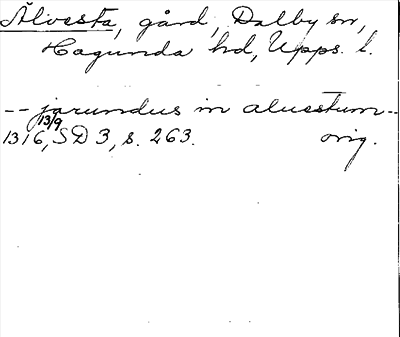 Älvesta, gård, Dalby sn,
Hagunda hd, Upps. l.
-- jarundus in aluestum --
13/9
1316, SD 3, s. 263. orig.